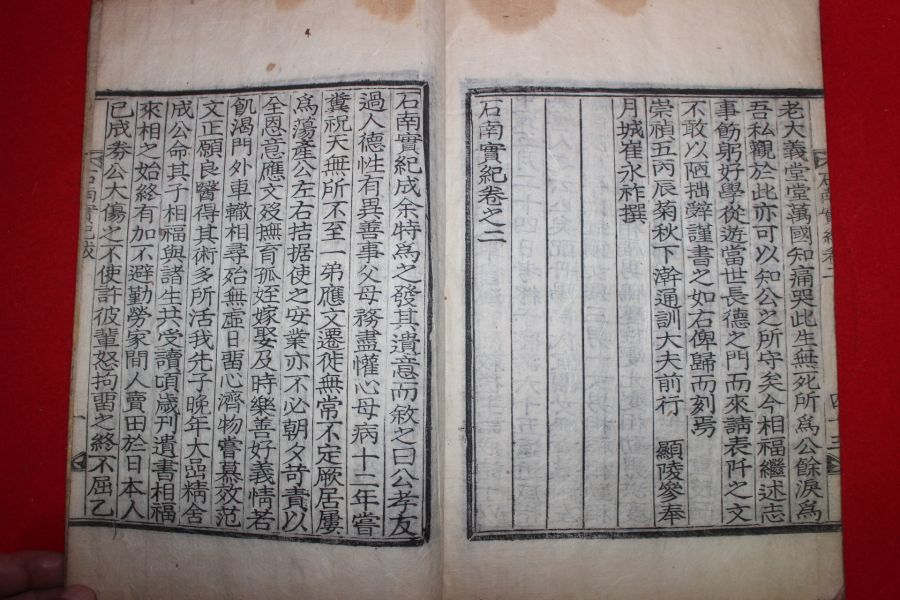 老大義堂堂萬國知痛哭此生無死所爲公餘淚爲
吾私觀於此亦可以知公之所守矣今相福繼述志
事飭躬好學從遊當世長德之門而來請表阡之文
不敢以陋拙辭謹書之如右俾歸而刻焉
崇禎五丙辰菊秋下澣通訓大夫前行 顯陵參奉
月城崔永祚撰
石南實紀卷之二
石南實紀成余特爲之發其遺意而敘之曰公孝友
過人德性有異善事父母務盡懽心母病十二年嘗
糞祝天無所不至二弟應文遷徙無常不定厥居屢
爲蕩產公左右拮据使之安業亦不必朝夕苛責以
全恩意應文歿撫育孤姪嫁娶及時樂善好義情若
飢渴門外車轍相尋殆無虛日留心濟物嘗慕效范
文正願良醫得其術多所活我先子晚年大啚精舍
成公命其子相福與諸生共受讀頃歲刊遺書相福
來相之始終有加不避勤勞家間人賣田於日本人
已成券公大傷之不使許彼輩怒拘留之終不屈乙